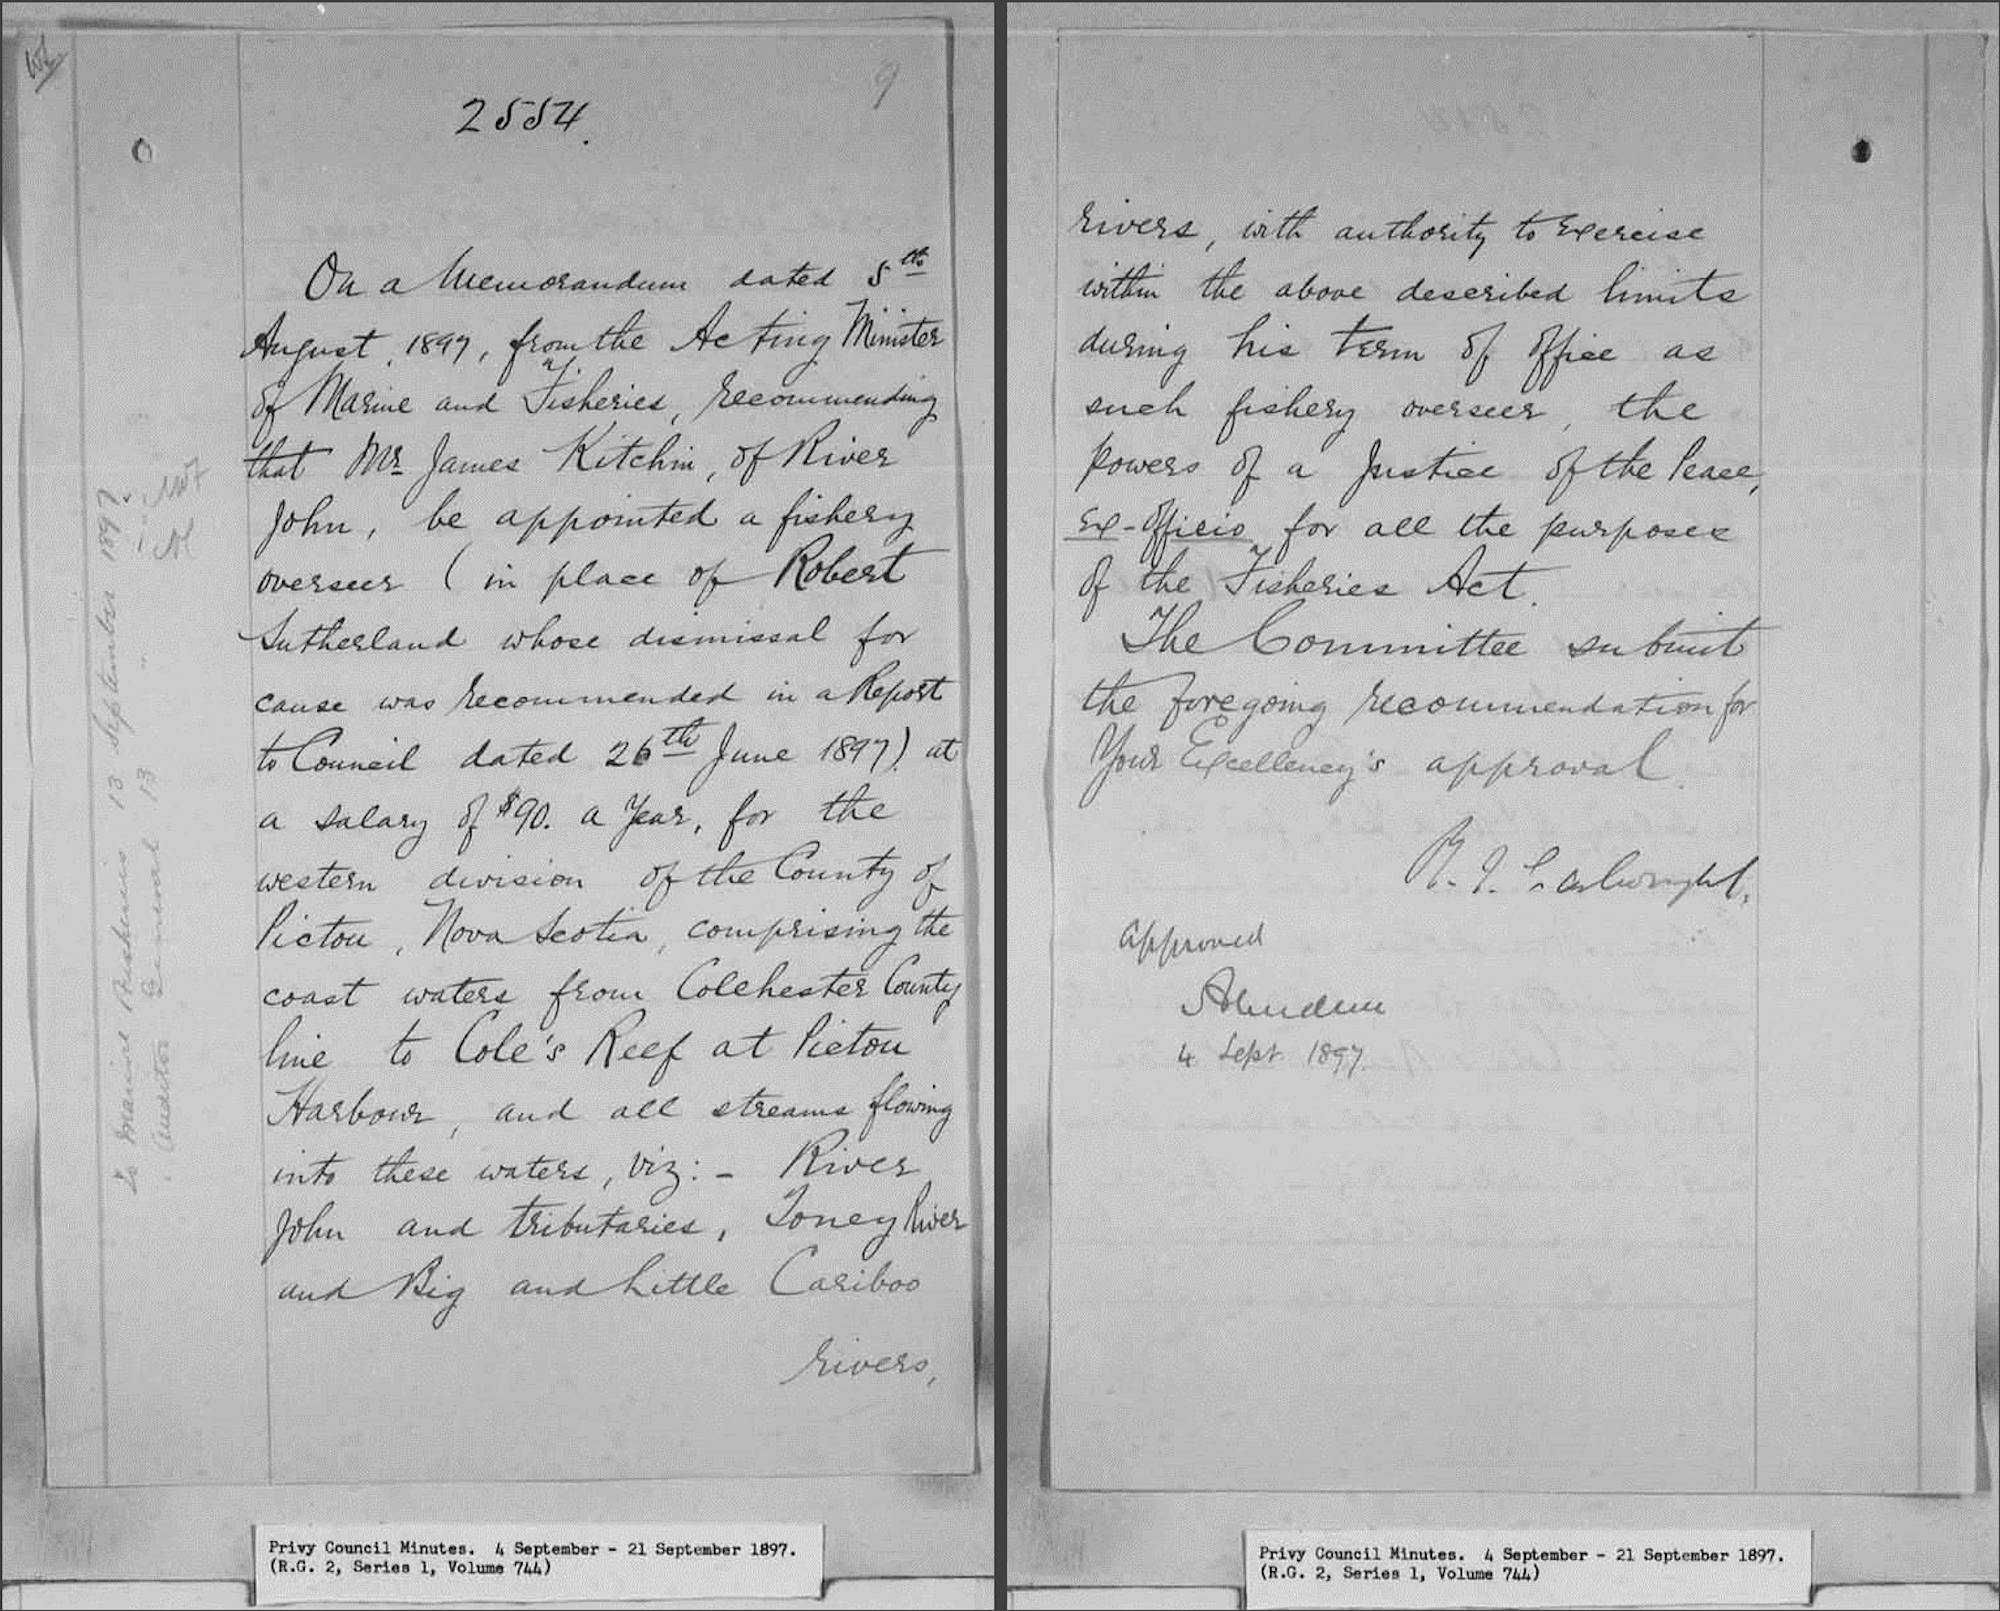 9
2554.
On a Memorandum dated 5th
August, 1897, from the Acting Minister
of Marine and Fisheries, recommending
that Mr James Kitchin, of River
John, be appointed a fishery
overseer (in place of Robert
Sutherland whose dismissal for
cause was recommended in a Report
to Council dated 26th June 1897) at
a salary of $90. a year, for the
western division of the County of
Pictou, Nova Scotia, comprising the
coast waters from Colchester County
line to Cole's Reef at Pictou
Harbour, and all streams flowing
into these waters, viz:- River
John and tributaries, Toney River
and Big and Little Cariboo
rivers,
To Marine & Fisheries 13 September 1897.
" Auditor General 13 "
Privy Council Minutes. 4 September - 21 September 1897.
(R.G. 2, Series 1, Volume 744)
rivers, with authority to exercise
within the above described limits
during his term of office as
such fishery overseer, the
powers of a Justice of the Peace,
ex-officio for all the purposes
of the Fisheries Act.
The Committee submit
the foregoing recommendation for
Your Excellency's approval.
R. J. Cartwright.
approved
Aberdeen
4 Sept. 1897.
Privy Council Minutes. 4 September - 21 September 1897.
(R.G. 2, Series 1, Volume 744)